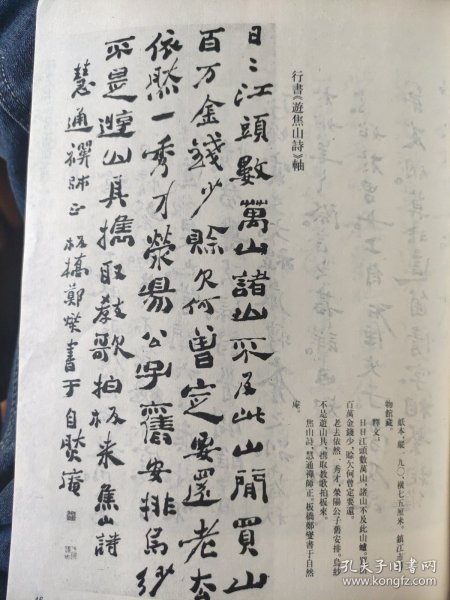 行書《遊焦山詩》軸
紙本，縱一九〇，橫七五厘米。鎮江市
物館藏。
釋文：
日日江頭數萬山，諸山不及此山
百萬金錢少，賒欠何曾定要還。
老去依然一秀才，滎陽公子舊安排。烏紗
不是遊山具，攜取教歌拍板來。
焦山詩，慧通禪師正。板橋鄭燮書于自然
庵。
日〻江頭數萬山諸山不及此山閒買山
百万金錢少賒欠何曾定要還老去
依然一秀才滎陽公子舊安排烏紗
不是遊山具攜取教歌拍板來焦山詩
慧通禪師正板橋鄭燮書于自然庵
孔夫子旧书网